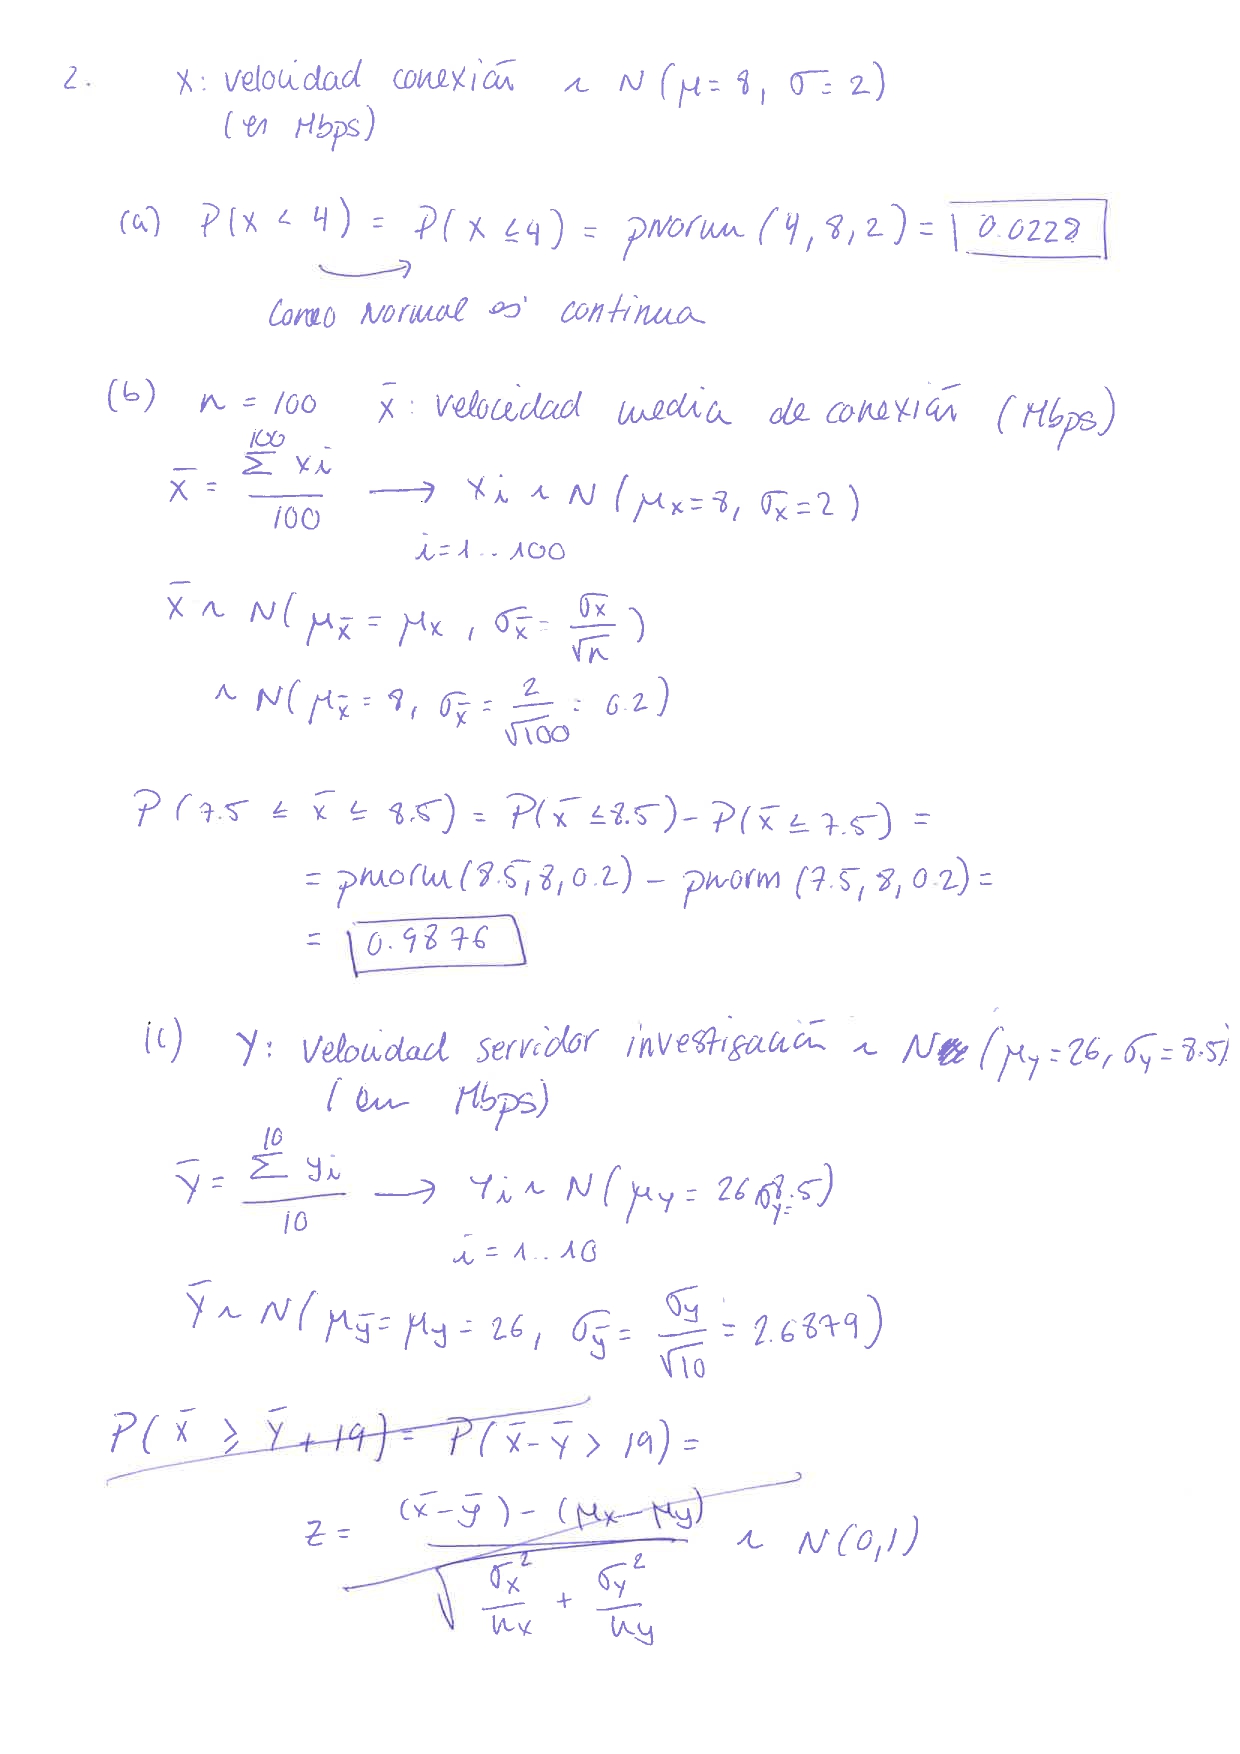 2. X: velocidad conexión ~ N(μ=8, σ=2)
(en Mbps)
(a) P(X < 4) = P(X ≤ 4) = pnorm(4, 8, 2) = 0.0228
Como Normal es continua
(b) n = 100 x̄: velocidad media de conexión (Mbps)
x̄ = (∑^100 xi)/100 → xi ~ N(μx=8, σx=2)
i=1..100
x̄ ~ N(μx̄ = μx, σx̄ = σx/√n)
~ N(μx̄ = 8, σx̄ = 2/√100 = 0.2)
P(7.5 ≤ x̄ ≤ 8.5) = P(x̄ ≤ 8.5) - P(x̄ ≤ 7.5) =
= pnorm(8.5, 8, 0.2) - pnorm(7.5, 8, 0.2) =
= 0.9876
(c) Y: velocidad servidor investigación ~ N(μy=26, σy=8.5)
(en Mbps)
Ȳ = (∑^10 yi)/10 → Yi ~ N(μy = 26 σy= 8.5)
i = 1..10
Ȳ ~ N(μȳ = μy = 26, σȳ = σy/√10 = 2.6879)
P(x̄ ≥ Ȳ + 19) = P(x̄ - Ȳ > 19) =
Z = ((x̄ - ȳ) - (μx - μy))/√(σx²/nx + σy²/ny) ~ N(0,1)